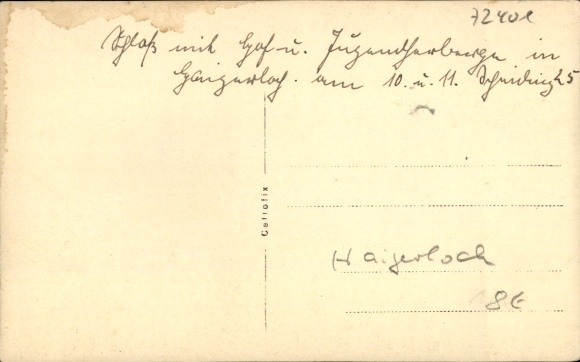 72401
Schloß mit Hof u. Jugendherberge in
Haigerloch. am 10. u. 11. Scheiding 25
Cellofix
Haigerloch
8€